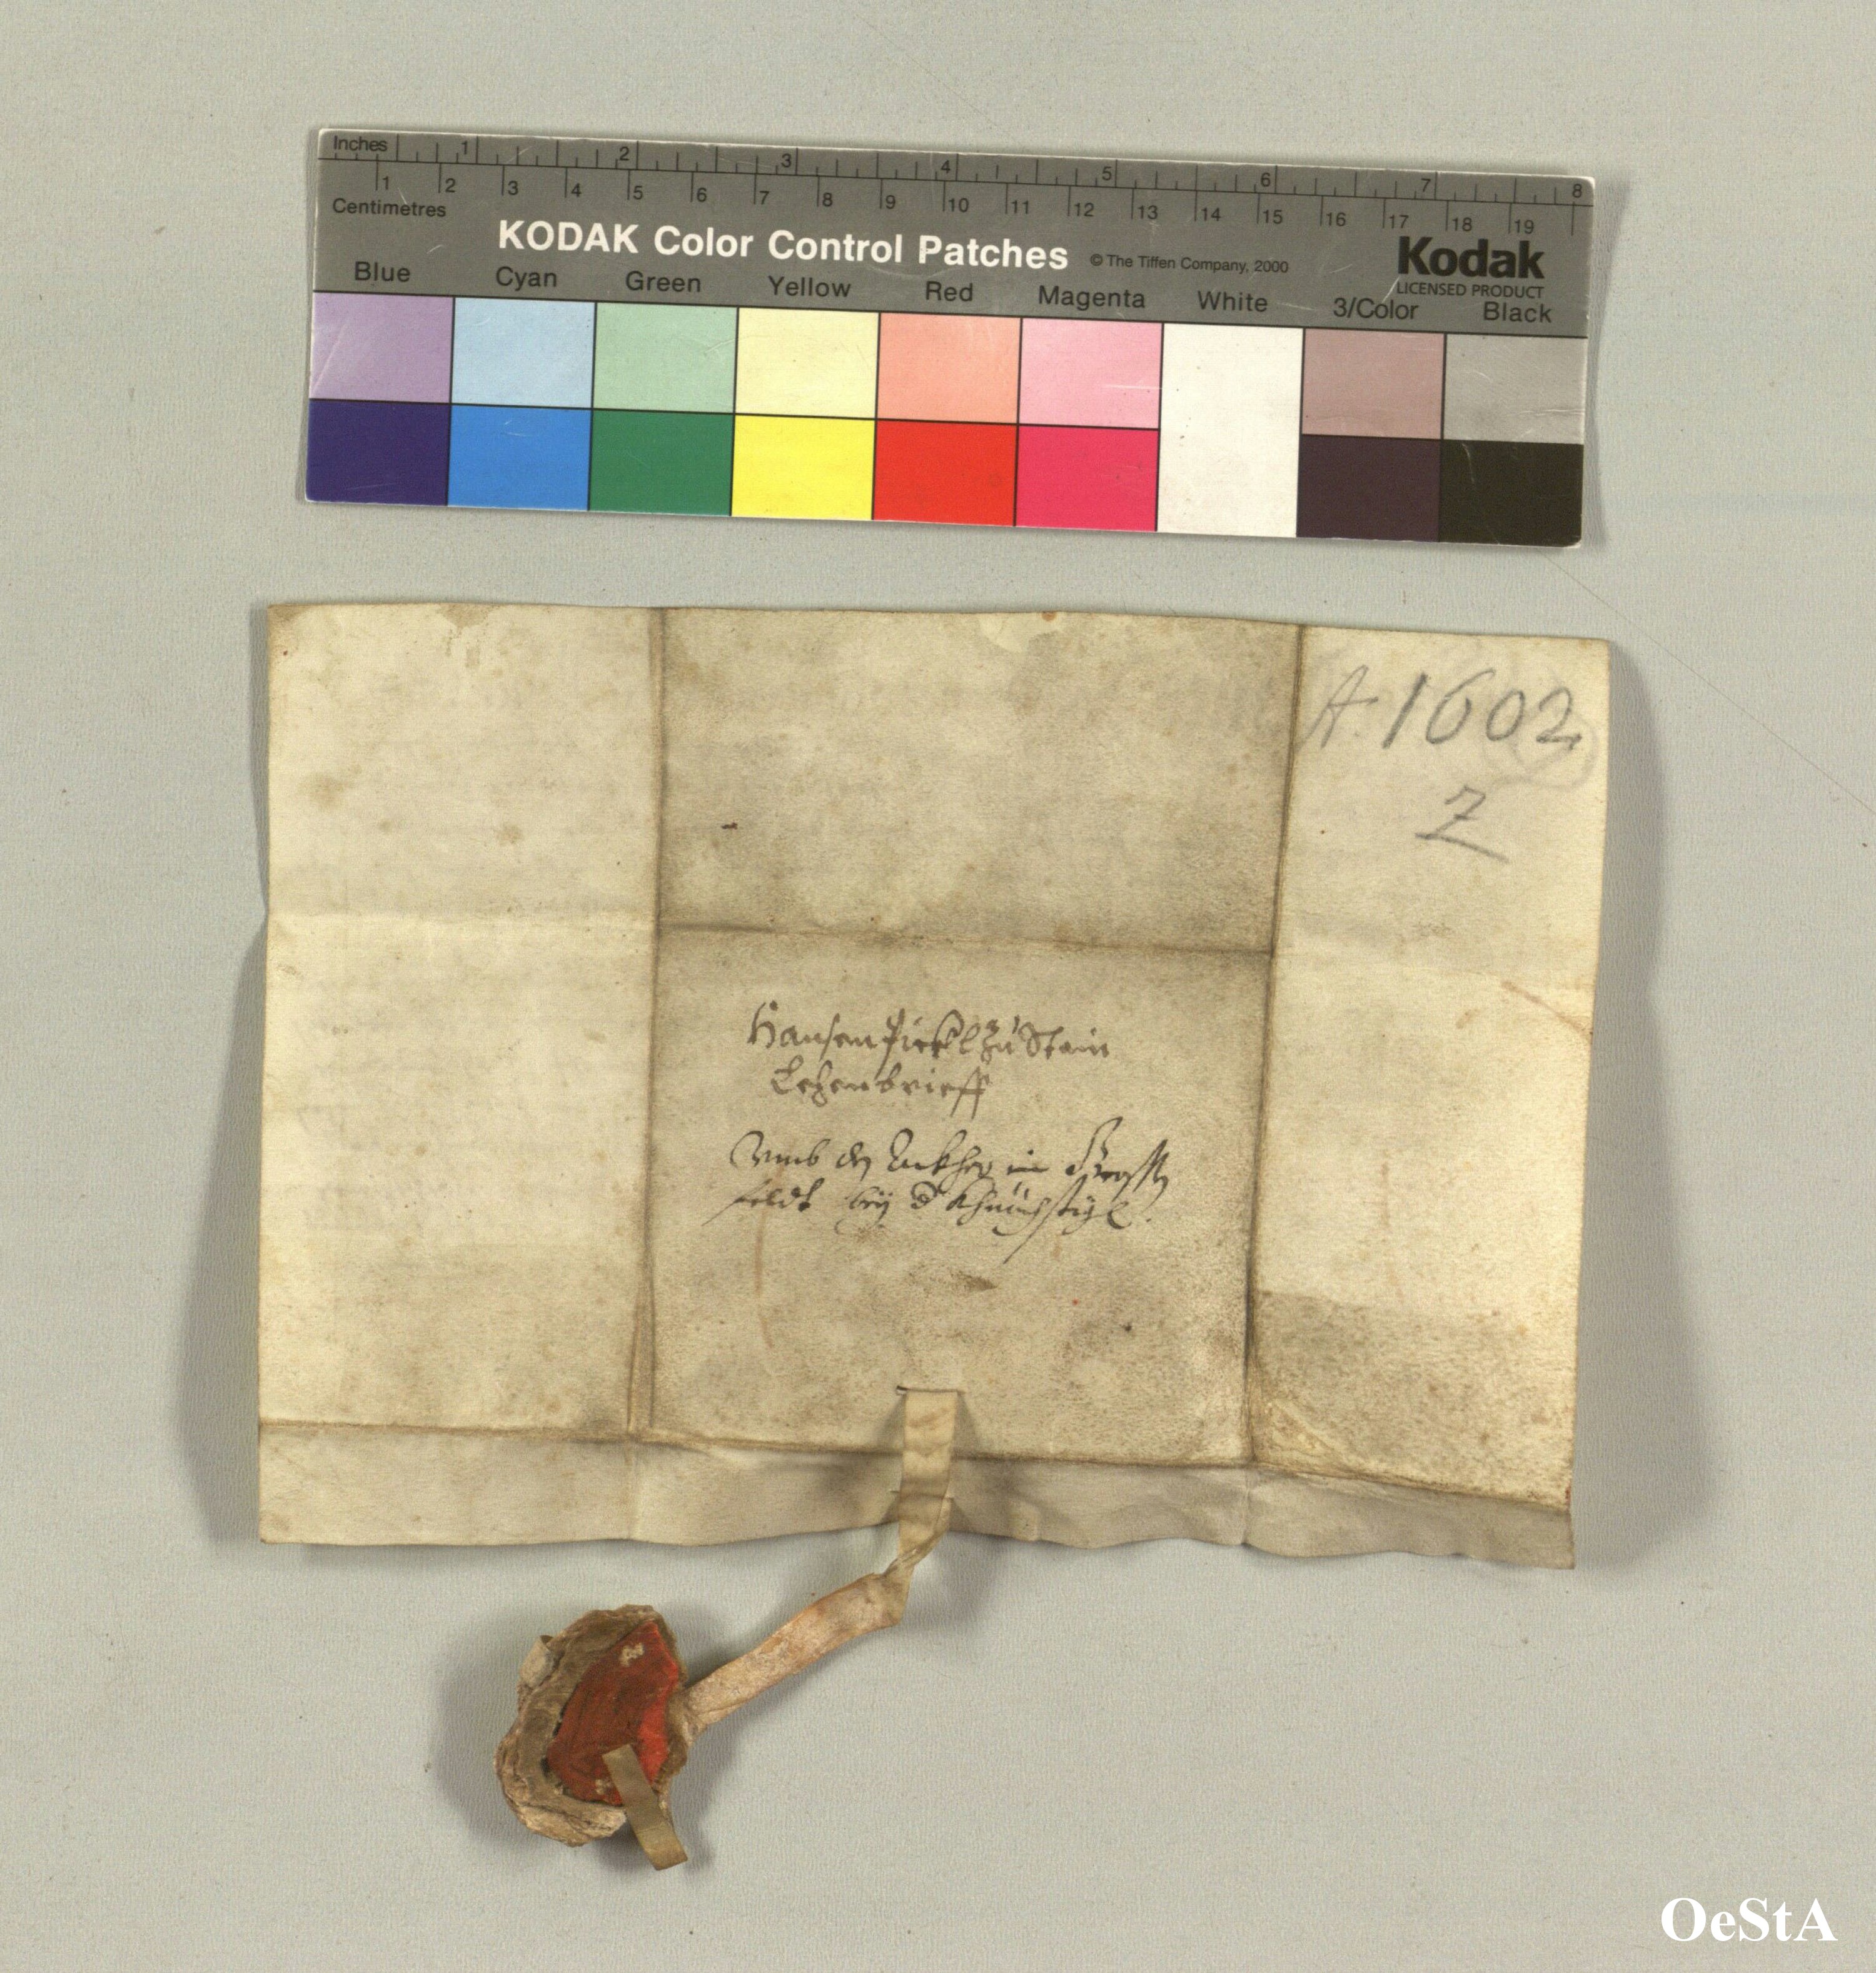 Inches 1 2 3 4 5 6 7 8
1 2 3 4 5 6 7 8 9 10 11 12 13 14 15 16 17 18 19
Centimetres
KODAK Color Control Patches © The Tiffen Company, 2000 Kodak
LICENSED PRODUCT
Blue Cyan Green Yellow Red Magenta White 3/Color Black
A. 1602
Z
Hansen Pirkl zu Stain
Lehenbrieff
Vmb den Ackher in
feldt bey
OeStA